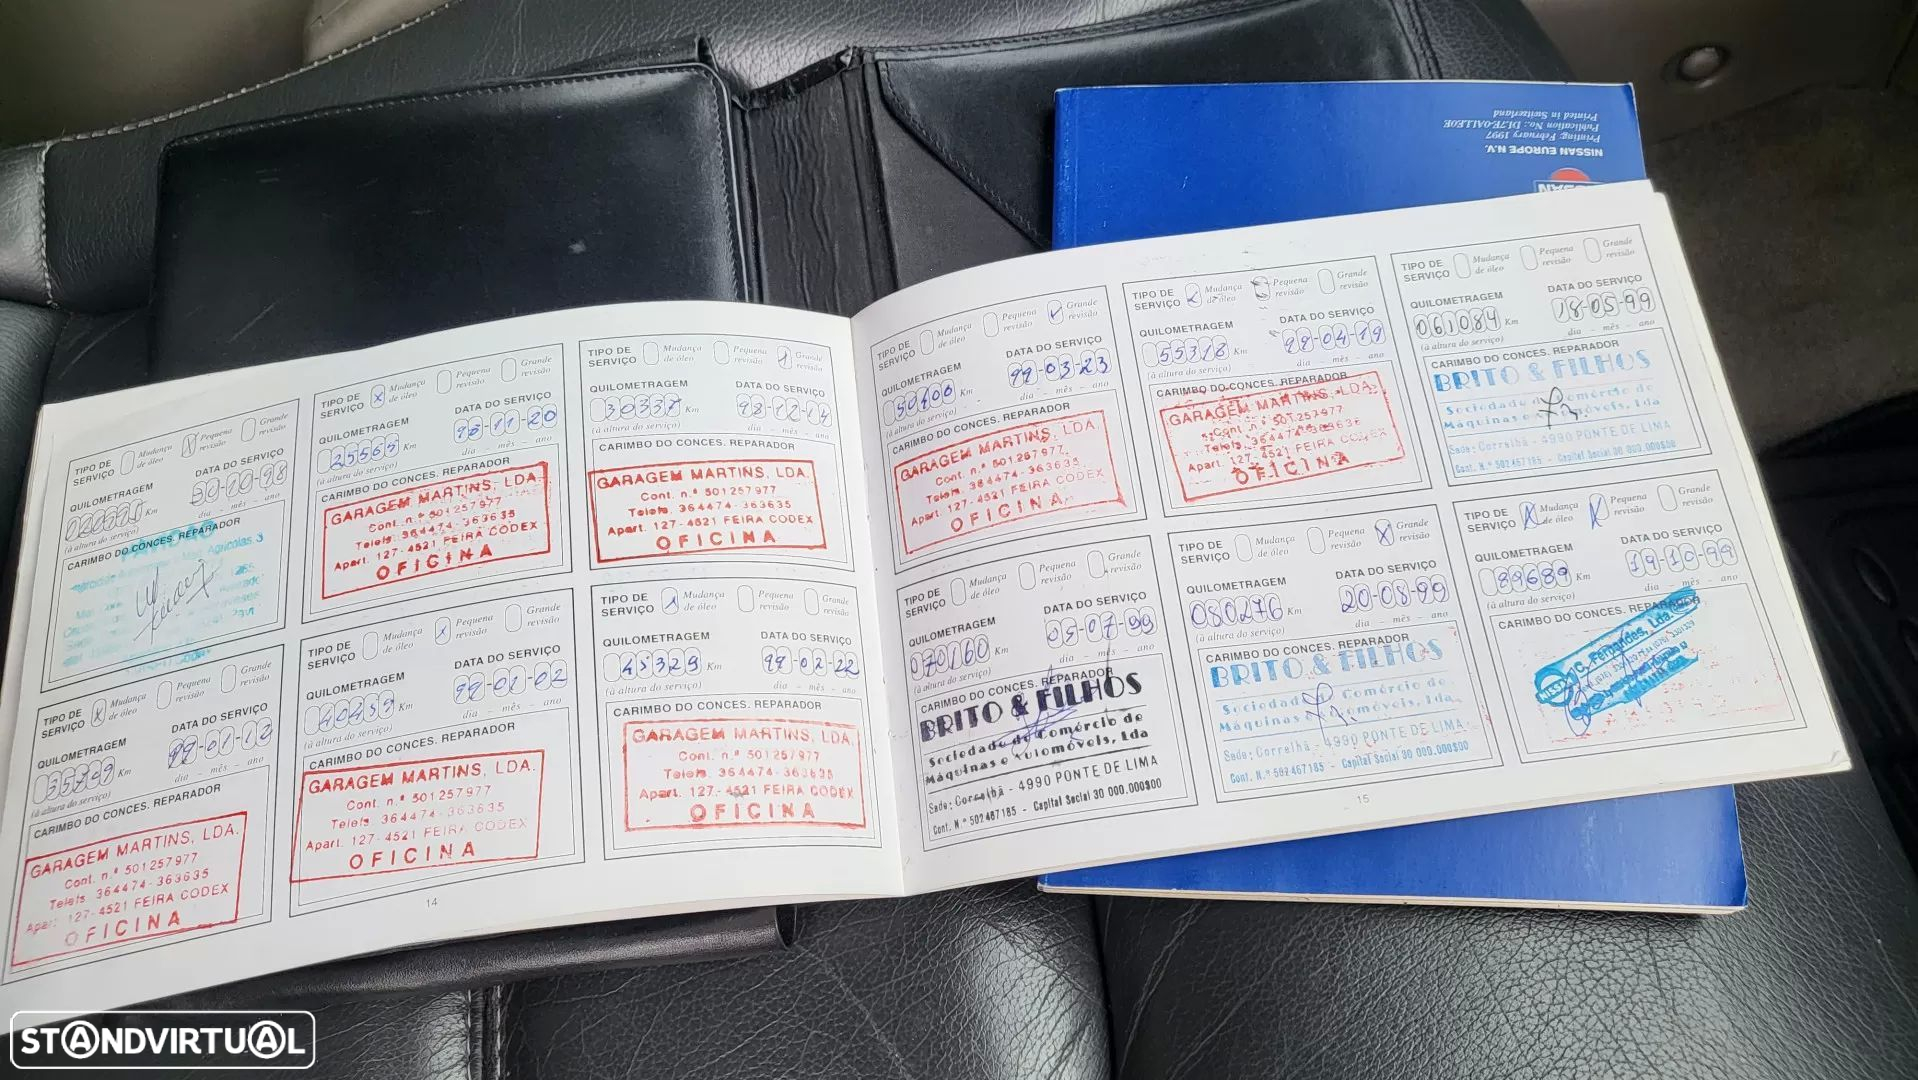 NISSAN EUROPE N.V.
Printing: February 1997
Publication No.: DL7E-0ALLE0E
Printed in Switzerland
NISSAN
TIPO DE SERVIÇO Mudança de óleo X Pequena revisão Grande revisão
QUILOMETRAGEM DATA DO SERVIÇO
Km 30-10-98
(à altura do serviço) dia - mês - ano
CARIMBO DO CONCES. REPARADOR
TIPO DE SERVIÇO X Mudança de óleo Pequena revisão Grande revisão
QUILOMETRAGEM DATA DO SERVIÇO
25565 Km 98-11-20
(à altura do serviço) dia - mês - ano
CARIMBO DO CONCES. REPARADOR
GARAGEM MARTINS, LDA.
Cont. n.º 501257977
Telefs. 364474-363635
Apart. 127-4521 FEIRA CODEX
OFICINA
TIPO DE SERVIÇO Mudança de óleo Pequena revisão Grande revisão
QUILOMETRAGEM DATA DO SERVIÇO
30337 Km 98-12-14
(à altura do serviço) dia - mês - ano
CARIMBO DO CONCES. REPARADOR
GARAGEM MARTINS, LDA.
Cont. n.º 501257977
Telefs. 364474-363635
Apart. 127-4521 FEIRA CODEX
OFICINA
TIPO DE SERVIÇO X Mudança de óleo Pequena revisão Grande revisão
QUILOMETRAGEM DATA DO SERVIÇO
35709 Km 99-01-12
(à altura do serviço) dia - mês - ano
CARIMBO DO CONCES. REPARADOR
GARAGEM MARTINS, LDA.
Cont. n.º 501257977
Telefs. 364474-363635
Apart. 127-4521 FEIRA CODEX
OFICINA
TIPO DE SERVIÇO Mudança de óleo X Pequena revisão Grande revisão
QUILOMETRAGEM DATA DO SERVIÇO
40459 Km 99-02-02
(à altura do serviço) dia - mês - ano
CARIMBO DO CONCES. REPARADOR
GARAGEM MARTINS, LDA.
Cont. n.º 501257977
Telefs. 364474-363635
Apart. 127-4521 FEIRA CODEX
OFICINA
TIPO DE SERVIÇO Mudança de óleo Pequena revisão Grande revisão
QUILOMETRAGEM DATA DO SERVIÇO
45329 Km 99-02-22
(à altura do serviço) dia - mês - ano
CARIMBO DO CONCES. REPARADOR
GARAGEM MARTINS, LDA.
Cont. n.º 501257977
Telefs. 364474-363635
Apart. 127-4521 FEIRA CODEX
OFICINA
14
TIPO DE SERVIÇO Mudança de óleo Pequena revisão Grande revisão
QUILOMETRAGEM DATA DO SERVIÇO
50400 Km 99-03-23
(à altura do serviço) dia - mês - ano
CARIMBO DO CONCES. REPARADOR
GARAGEM MARTINS, LDA.
Cont. n.º 501257977
Telefs. 364474-363635
Apart. 127-4521 FEIRA CODEX
OFICINA
TIPO DE SERVIÇO Mudança de óleo Pequena revisão Grande revisão
QUILOMETRAGEM DATA DO SERVIÇO
55318 Km 99-04-19
(à altura do serviço) dia - mês - ano
CARIMBO DO CONCES. REPARADOR
GARAGEM MARTINS, LDA.
Cont. n.º 501257977
Telefs. 364474-363635
Apart. 127-4521 FEIRA CODEX
OFICINA
TIPO DE SERVIÇO Mudança de óleo Pequena revisão Grande revisão
QUILOMETRAGEM DATA DO SERVIÇO
061084 Km 18-05-99
(à altura do serviço) dia - mês - ano
CARIMBO DO CONCES. REPARADOR
BRITO & FILHOS
Sociedade de Comércio de
Máquinas e Automóveis, Lda
Sede: Correlhã - 4990 PONTE DE LIMA
Cont. N.º 502467185 - Capital Social 30 000.000$00
TIPO DE SERVIÇO Mudança de óleo Pequena revisão Grande revisão
QUILOMETRAGEM DATA DO SERVIÇO
070160 Km 05-07-99
(à altura do serviço) dia - mês - ano
CARIMBO DO CONCES. REPARADOR
BRITO & FILHOS
Sociedade de Comércio de
Máquinas e Automóveis, Lda
Sede: Correlhã - 4990 PONTE DE LIMA
Cont. N.º 502467185 - Capital Social 30 000.000$00
TIPO DE SERVIÇO Mudança de óleo Pequena revisão X Grande revisão
QUILOMETRAGEM DATA DO SERVIÇO
080276 Km 20-08-99
(à altura do serviço) dia - mês - ano
CARIMBO DO CONCES. REPARADOR
BRITO & FILHOS
Sociedade de Comércio de
Máquinas e Automóveis, Lda
Sede: Correlhã - 4990 PONTE DE LIMA
Cont. N.º 502467185 - Capital Social 30 000.000$00
TIPO DE SERVIÇO X Mudança de óleo X Pequena revisão Grande revisão
QUILOMETRAGEM DATA DO SERVIÇO
89689 Km 19-10-99
(à altura do serviço) dia - mês - ano
CARIMBO DO CONCES. REPARADOR
C. Fernandes, Lda.
15
STANDVIRTUAL